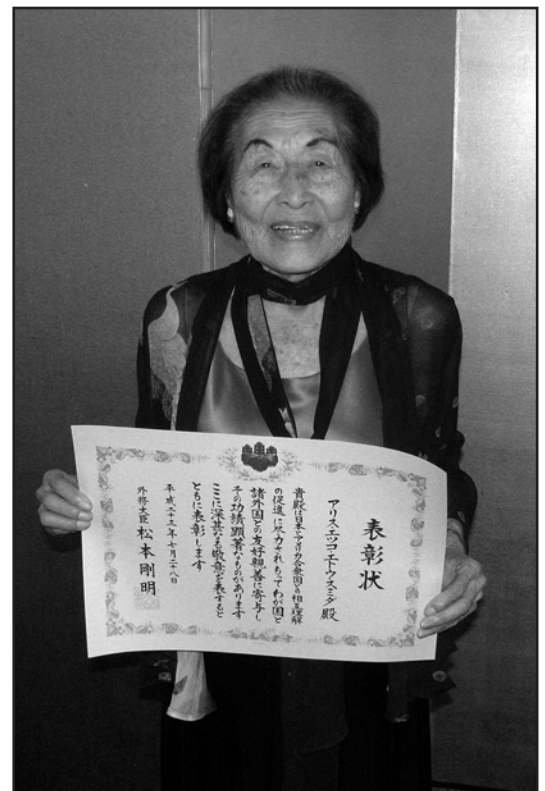 表彰状
アリス・エツコ・エトウ・スミダ 殿
貴殿は日本とアメリカ合衆国との相互理解
の促進に尽力されもってわが国と
諸外国との友好親善に寄与し
その功績顕著なものがあります
ここに深甚なる敬意を表すると
ともに表彰します
平成二十三年七月二十八日
外務大臣 松本剛明